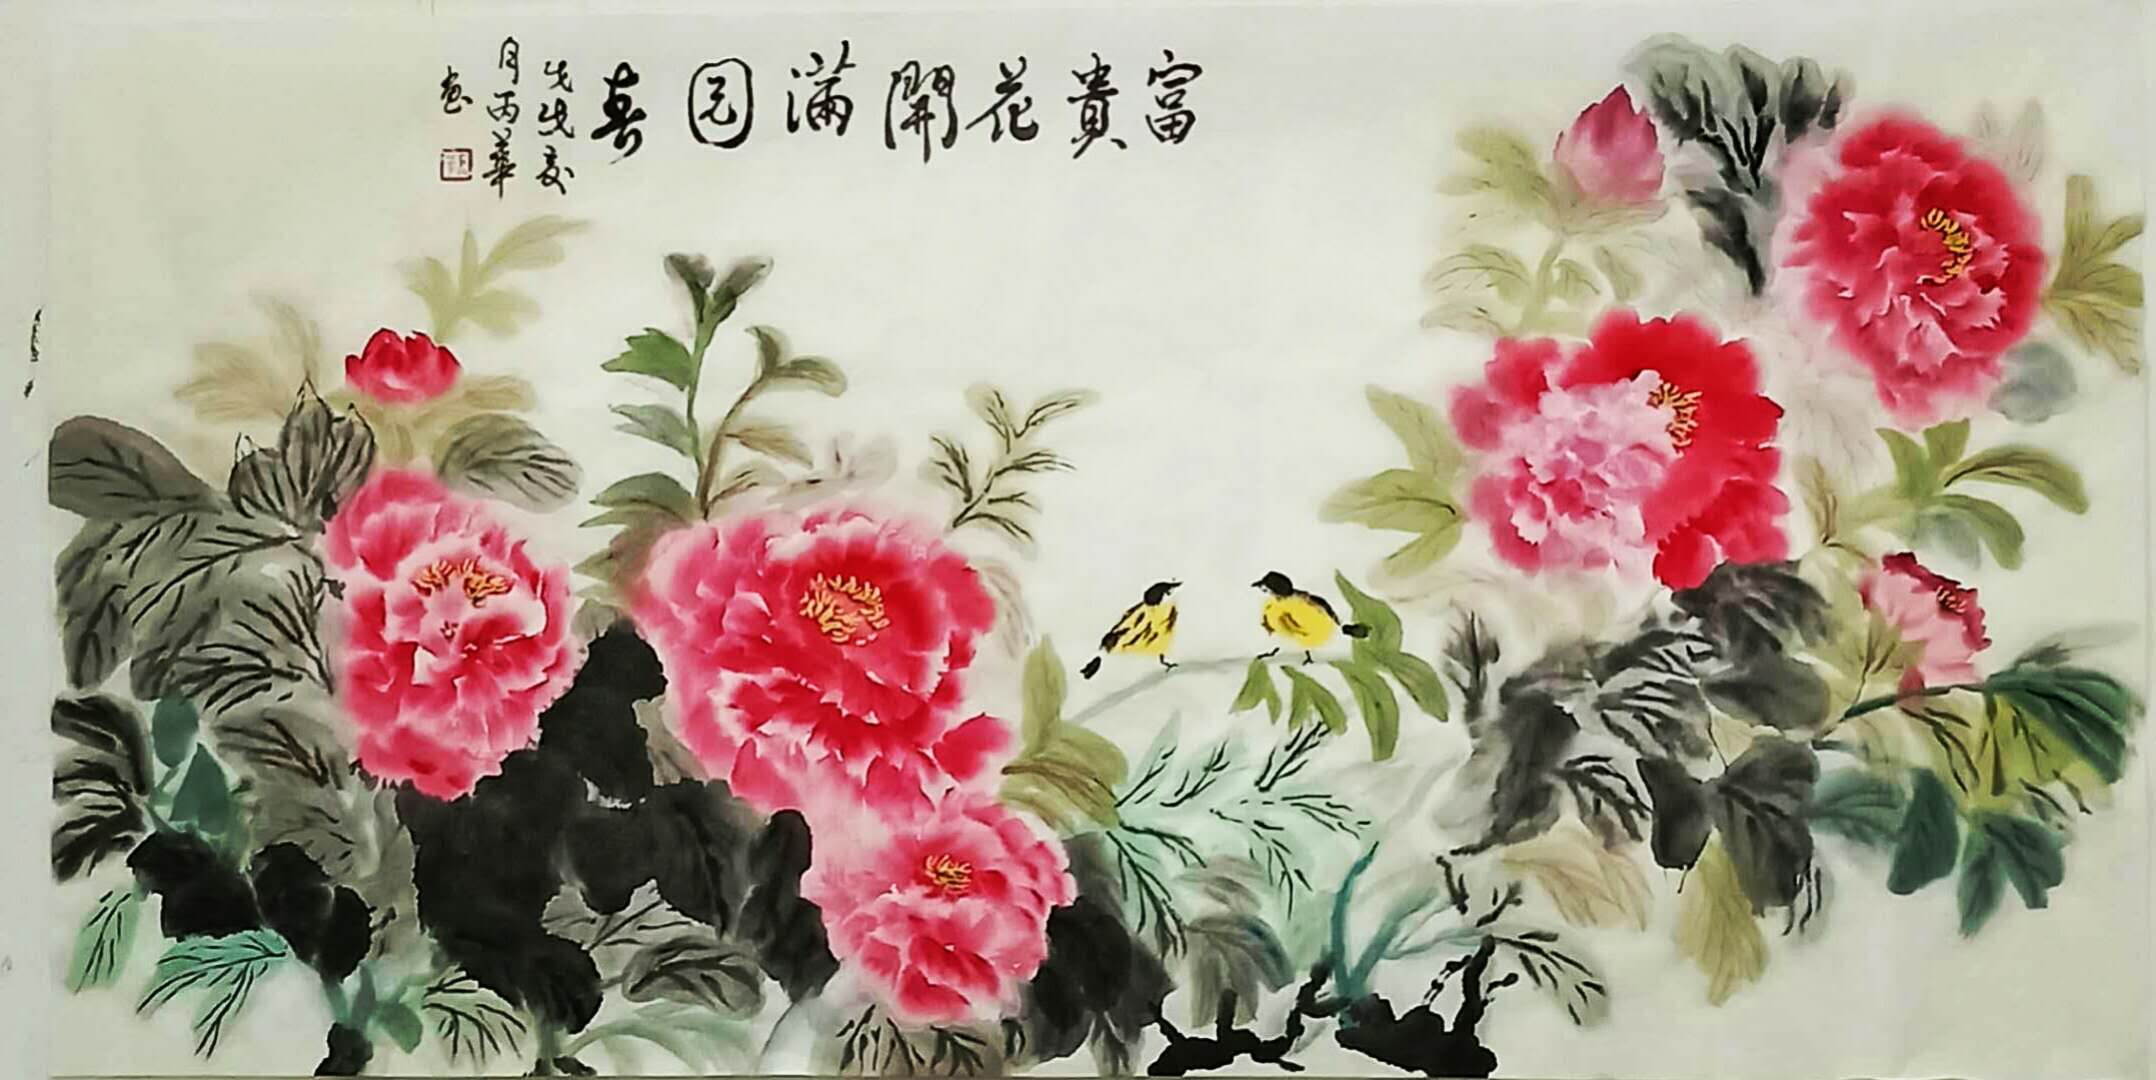 富貴花開滿园春
戊戌夏
月丙華
画